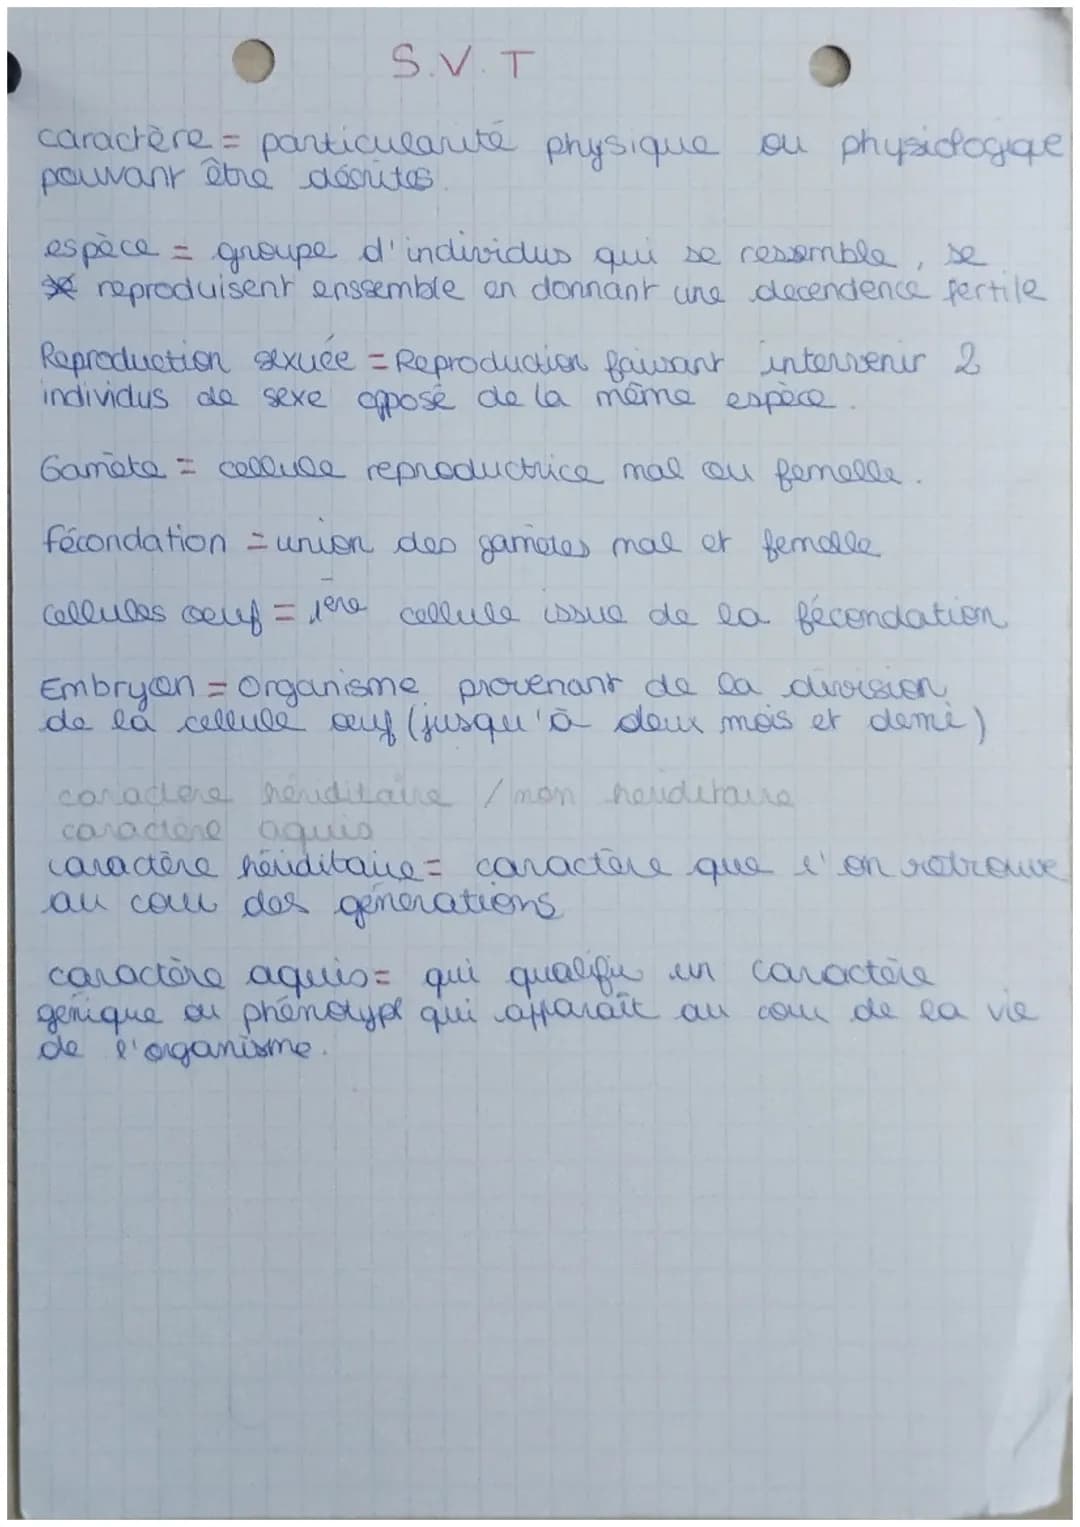 S.V.T
caractère = particularité physique ou physiologique
pouvant être décrites.
espèce = groupe d'individus qui se ressemble, se
reproduisent enssemble en donnant une decendence fertile
Reproduction sexuée = Reproduction faisant intervenir 2
individus de sexe opposé de la même espèce.
Gamète = cellule reproductrice mal ou femelle.
fécondation = union des gamètes mal et femelle
cellules oeuf = 1ère cellule issue de la fécondation
Embryon = Organisme provenant de la division
de la cellule oeuf (jusqu'à deux mois et demi)
caractère hériditaire / non heriditaire
caractère aquis
caractère hériditaire = caractère que l'on retrouve
au cour des générations
caractère aquis = qui qualifie un caractère
génique ou phénotype qui apparaît au cour de la vie
de l'organisme.